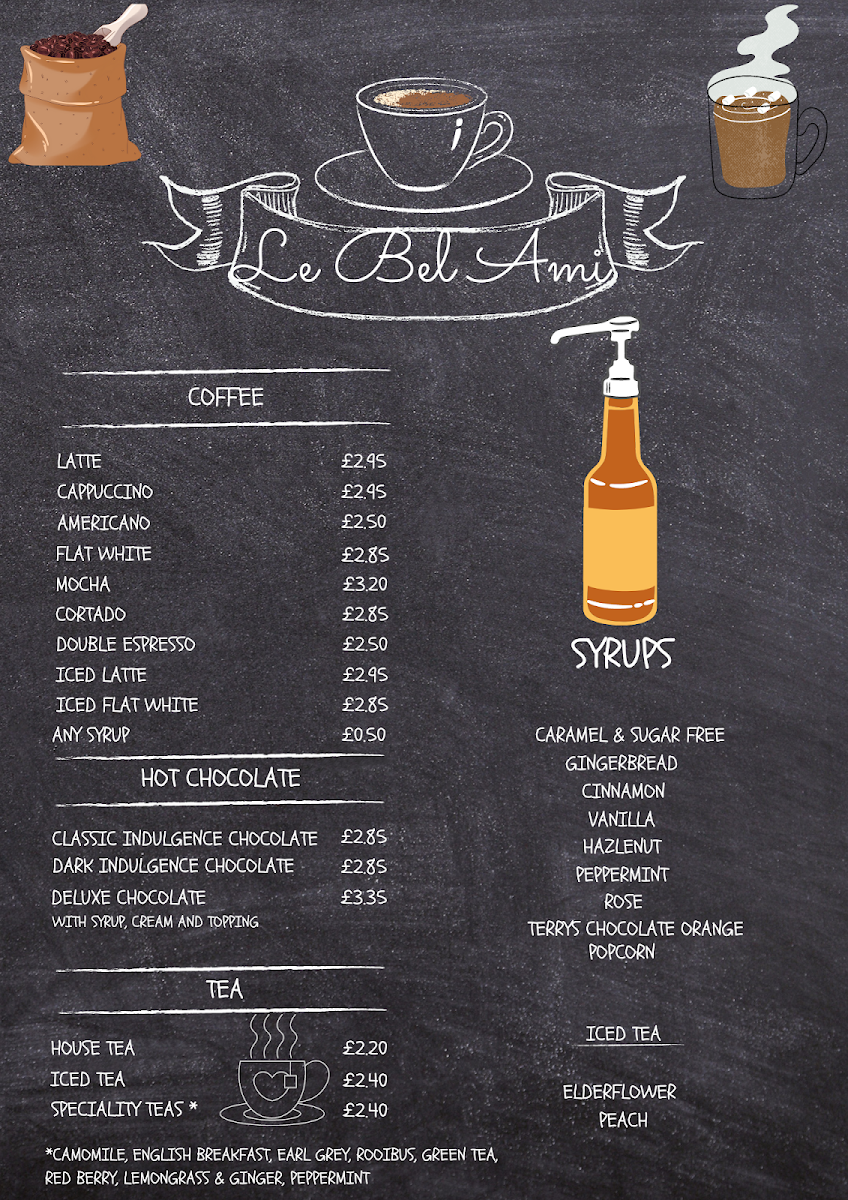 Le Bel Ami
COFFEE
LATTE £2.95
CAPPUCCINO £2.95
AMERICANO £2.50
FLAT WHITE £2.85
MOCHA £3.20
CORTADO £2.85
DOUBLE ESPRESSO £2.50
ICED LATTE £2.95
ICED FLAT WHITE £2.85
ANY SYRUP £0.50
HOT CHOCOLATE
CLASSIC INDULGENCE CHOCOLATE £2.85
DARK INDULGENCE CHOCOLATE £2.85
DELUXE CHOCOLATE £3.35
WITH SYRUP, CREAM AND TOPPING
TEA
HOUSE TEA £2.20
ICED TEA £2.40
SPECIALITY TEAS * £2.40
*CAMOMILE, ENGLISH BREAKFAST, EARL GREY, ROOIBUS, GREEN TEA,
RED BERRY, LEMONGRASS & GINGER, PEPPERMINT
SYRUPS
CARAMEL & SUGAR FREE
GINGERBREAD
CINNAMON
VANILLA
HAZLENUT
PEPPERMINT
ROSE
TERRYS CHOCOLATE ORANGE
POPCORN
ICED TEA
ELDERFLOWER
PEACH